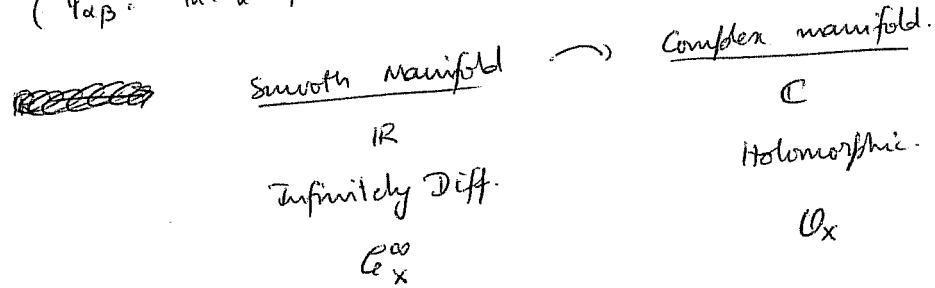 ( φαβ :
Smooth Manifold ⟶ Complex manifold.
ℝ ℂ
Infinitely Diff. Holomorphic.
𝒞^∞_X 𝒪_X